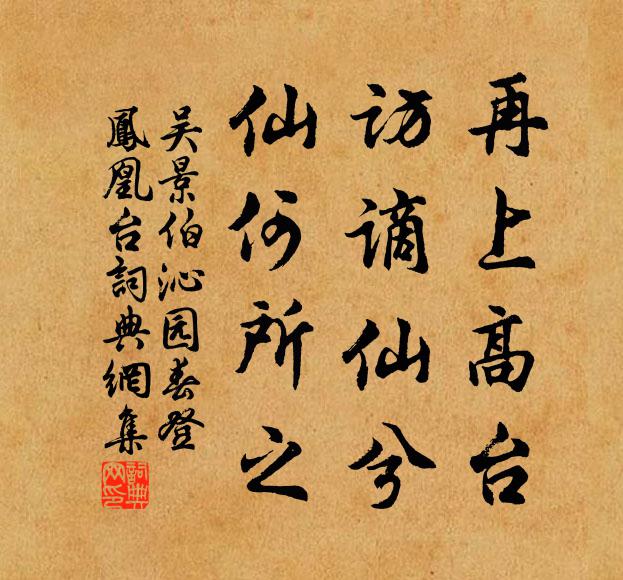 再上高台
访谪仙兮
仙何所之
吴景伯沁园春登
鳳凰台詞典網集
詞典
网印